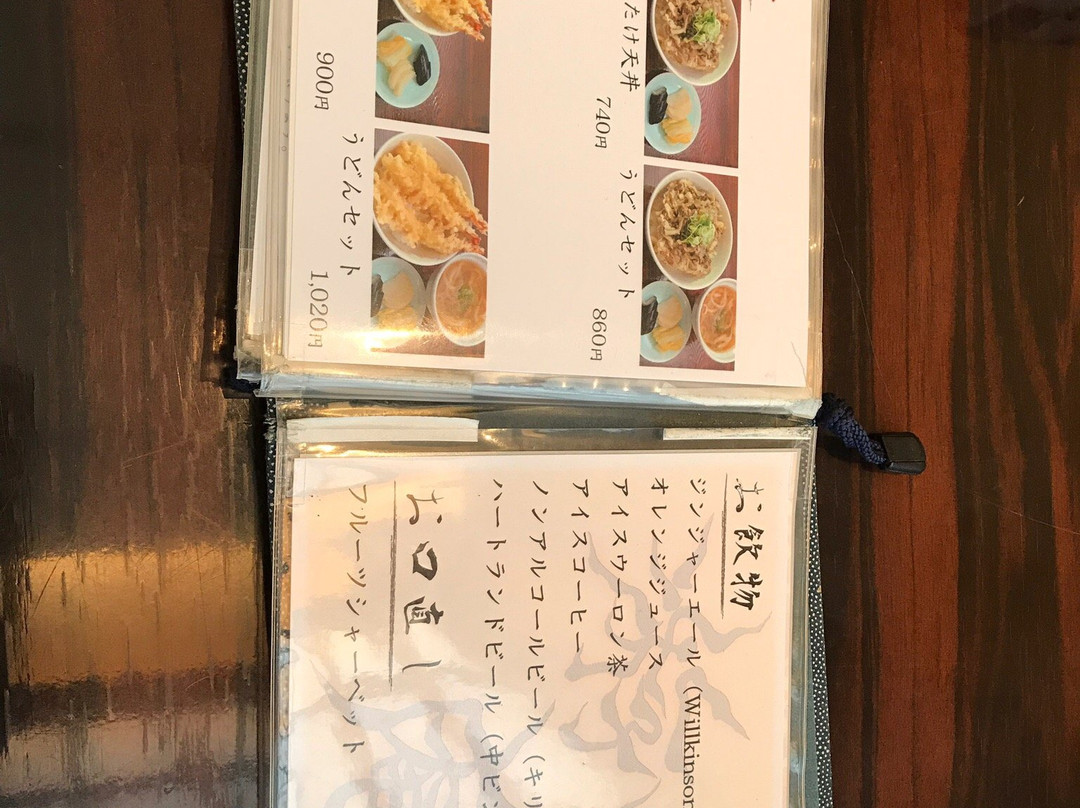 たけ天丼
740円
うどんセット
860円
900円
うどんセット
1,020円
お飲物
ジンジャーエール (Willkinson
オレンジジュース
アイスウーロン茶
アイスコーヒー
ノンアルコールビール (キリ
ハートランドビール (中ビン
お口直し
フルーツシャーベット